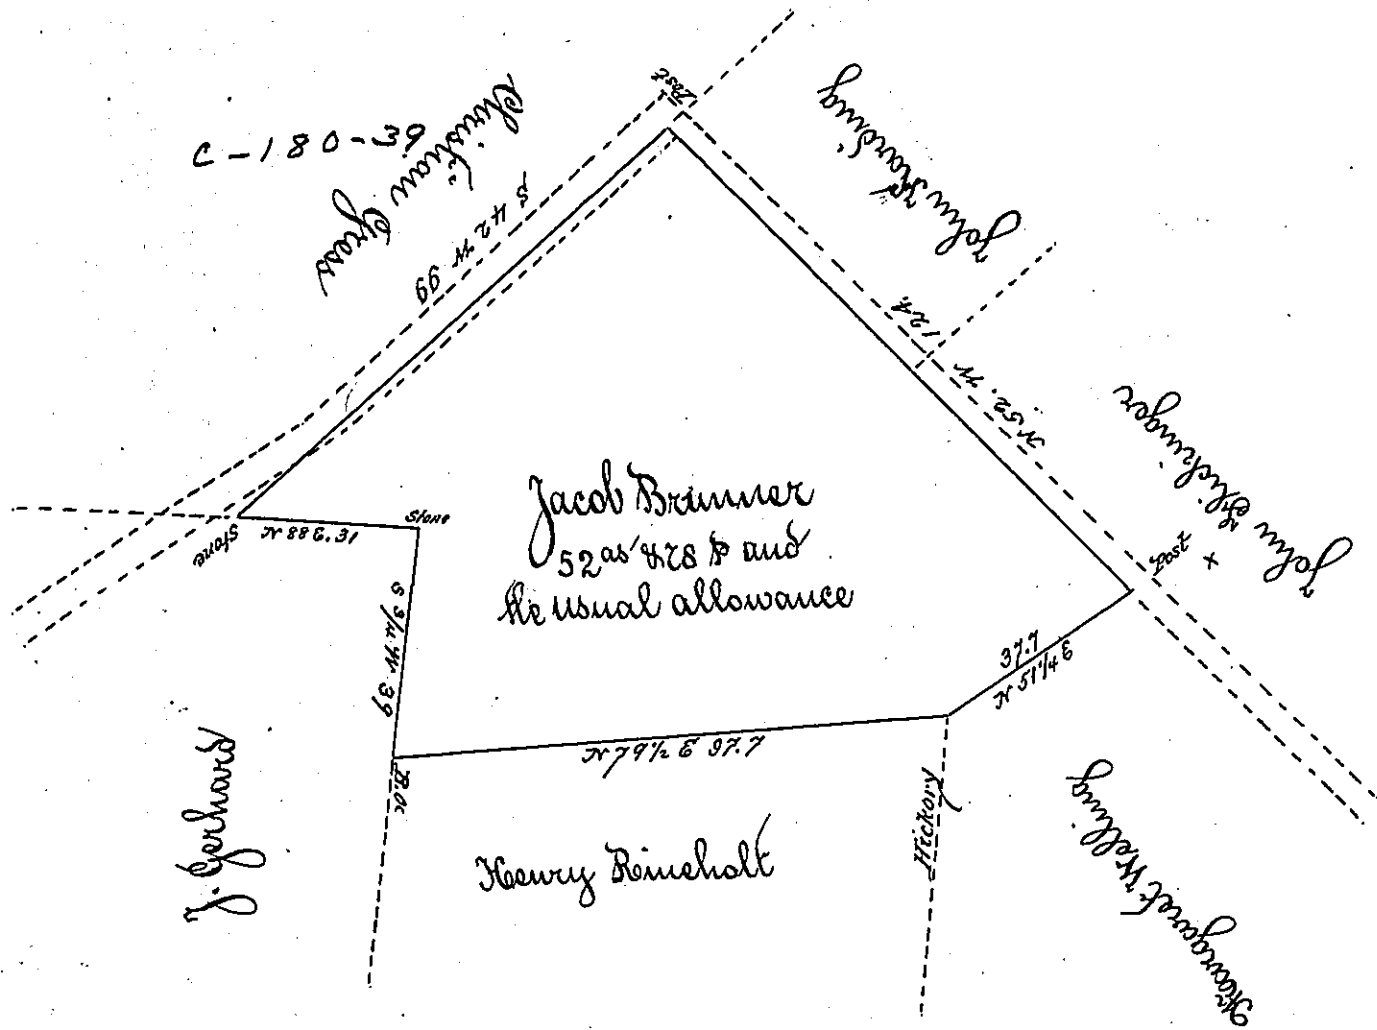 C-180-39
Christian Gress
S 42 W 99
Post
John Harding
124
N 52. W
John Flichinger
Post
X
Jacob Brunner
52 as & 78 P and
the usual allowance
Stone
N 88 E. 31
Stone
S 3/4 W 39
B.O.
37.7
N 51 1/4 E
N 79 1/2 E 97.7
Hickory
J. Gerhard
Henry Rineholt
Margaret Welling